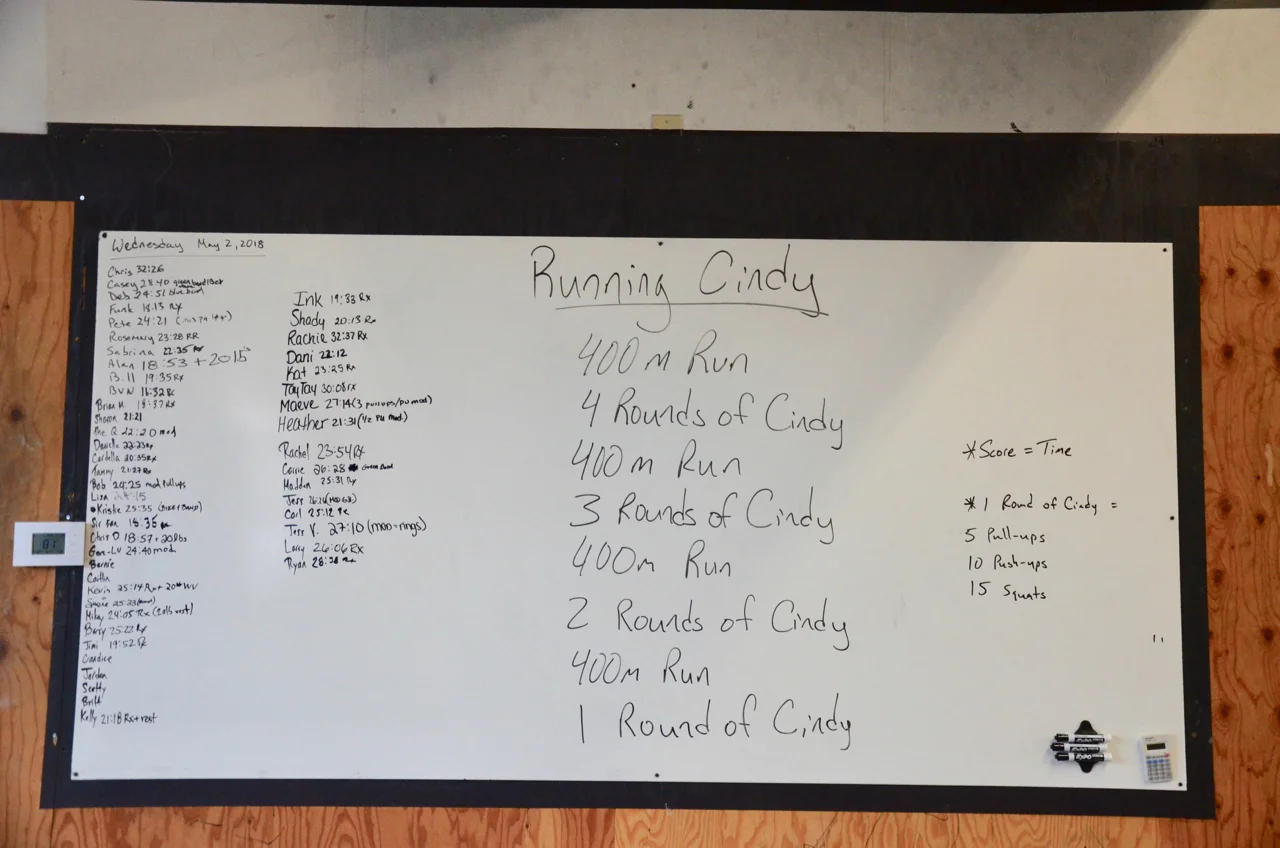 Wednesday May 2, 2018
Chris 32:26
Casey 28:40
Deb 24:51 blue band
Funk 18:13 Rx
Pete 24:21
Rosemary 23:28 RR
Sabrina 22:35
Alan 18:53 + 20 15
Bill 19:35 Rx
BVN 18:32 Rx
Brian M 18:37 Rx
Sharon 21:21
22:20 mod
Danielle 22:23
Cordelia 20:35 Rx
Tammy 21:27 Rx
Bob 24:25 mod pullups
Lisa
Kristie 25:35
Sir 18:36
Chris D 18:57 + 20lbs
Gen-LV 24:40 mod
Bernie
Caitlin
Kevin 25:14 Rx + 20# WV
25:23
Mikey 24:05 Rx (20lb vest)
Barry 25:22 Rx
Jimi 19:52 Rx
Candice
Jordan
Scotty
Britt
Kelly 21:18 Rx + vest
Ink 19:33 Rx
Shady 20:13 Rx
Rachie 32:37 Rx
Dani 22:12
Kat 23:25 Rx
TayTay 30:08 rx
Maeve 27:14 (3 pullups/pu mod)
Heather 21:31 (1/2 PU mod.)
Rachel 23:54 RX
Carrie 26:28 Green Band
Madden 25:31 Rx
Jess
Carl 25:12 Rx
Terr V. 27:10 (mod-rings)
Larry 26:06 Rx
Ryan
Running Cindy
400m Run
4 Rounds of Cindy
400m Run
3 Rounds of Cindy
400m Run
2 Rounds of Cindy
400m Run
1 Round of Cindy
*Score = Time
* 1 Round of Cindy =
5 Pull-ups
10 Push-ups
15 Squats
EXPO